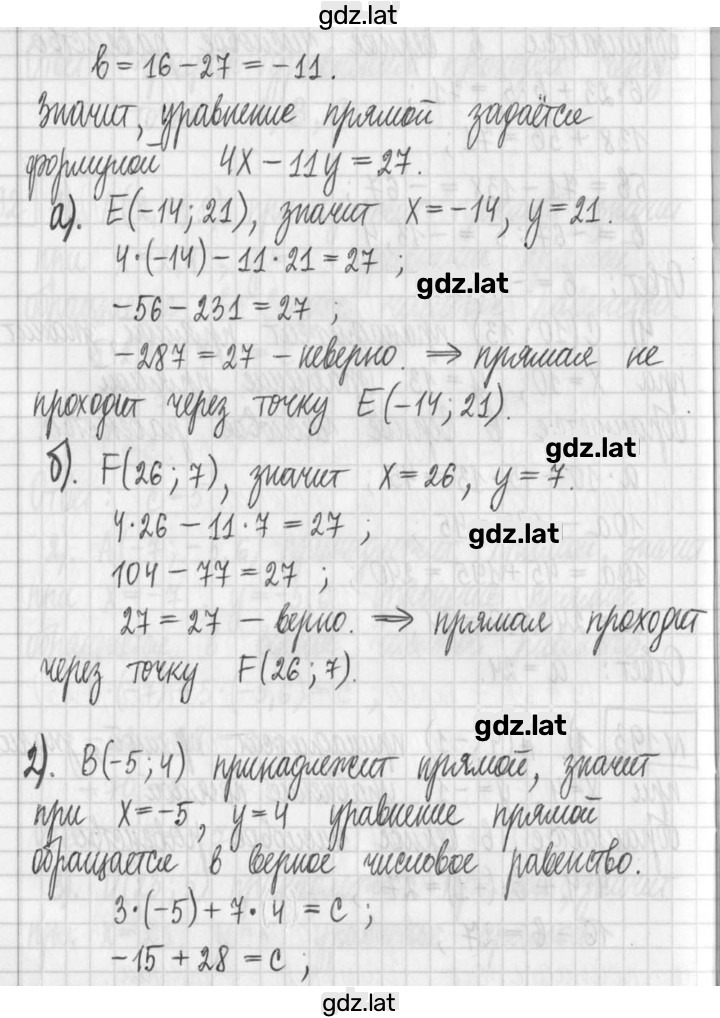 gdz.lat
в = 16 - 27 = -11.
Значит, уравнение прямой задаётся
формулой 4x - 11y = 27.
а). E(-14; 21), значит x = -14, y = 21.
4·(-14) - 11·21 = 27 ;
gdz.lat
-56 - 231 = 27 ;
-287 = 27 - неверно. ⇒ прямая не
проходит через точку E(-14; 21).
gdz.lat
б). F(26; 7), значит x = 26, y = 7.
4·26 - 11·7 = 27 ;
gdz.lat
104 - 77 = 27 ;
27 = 27 - верно. ⇒ прямая проходит
через точку F(26; 7).
gdz.lat
2). B(-5; 4) принадлежит прямой, значит
при x = -5, y = 4 уравнение прямой
обращается в верное числовое равенство.
3·(-5) + 7·4 = c ;
-15 + 28 = c ;
gdz.lat